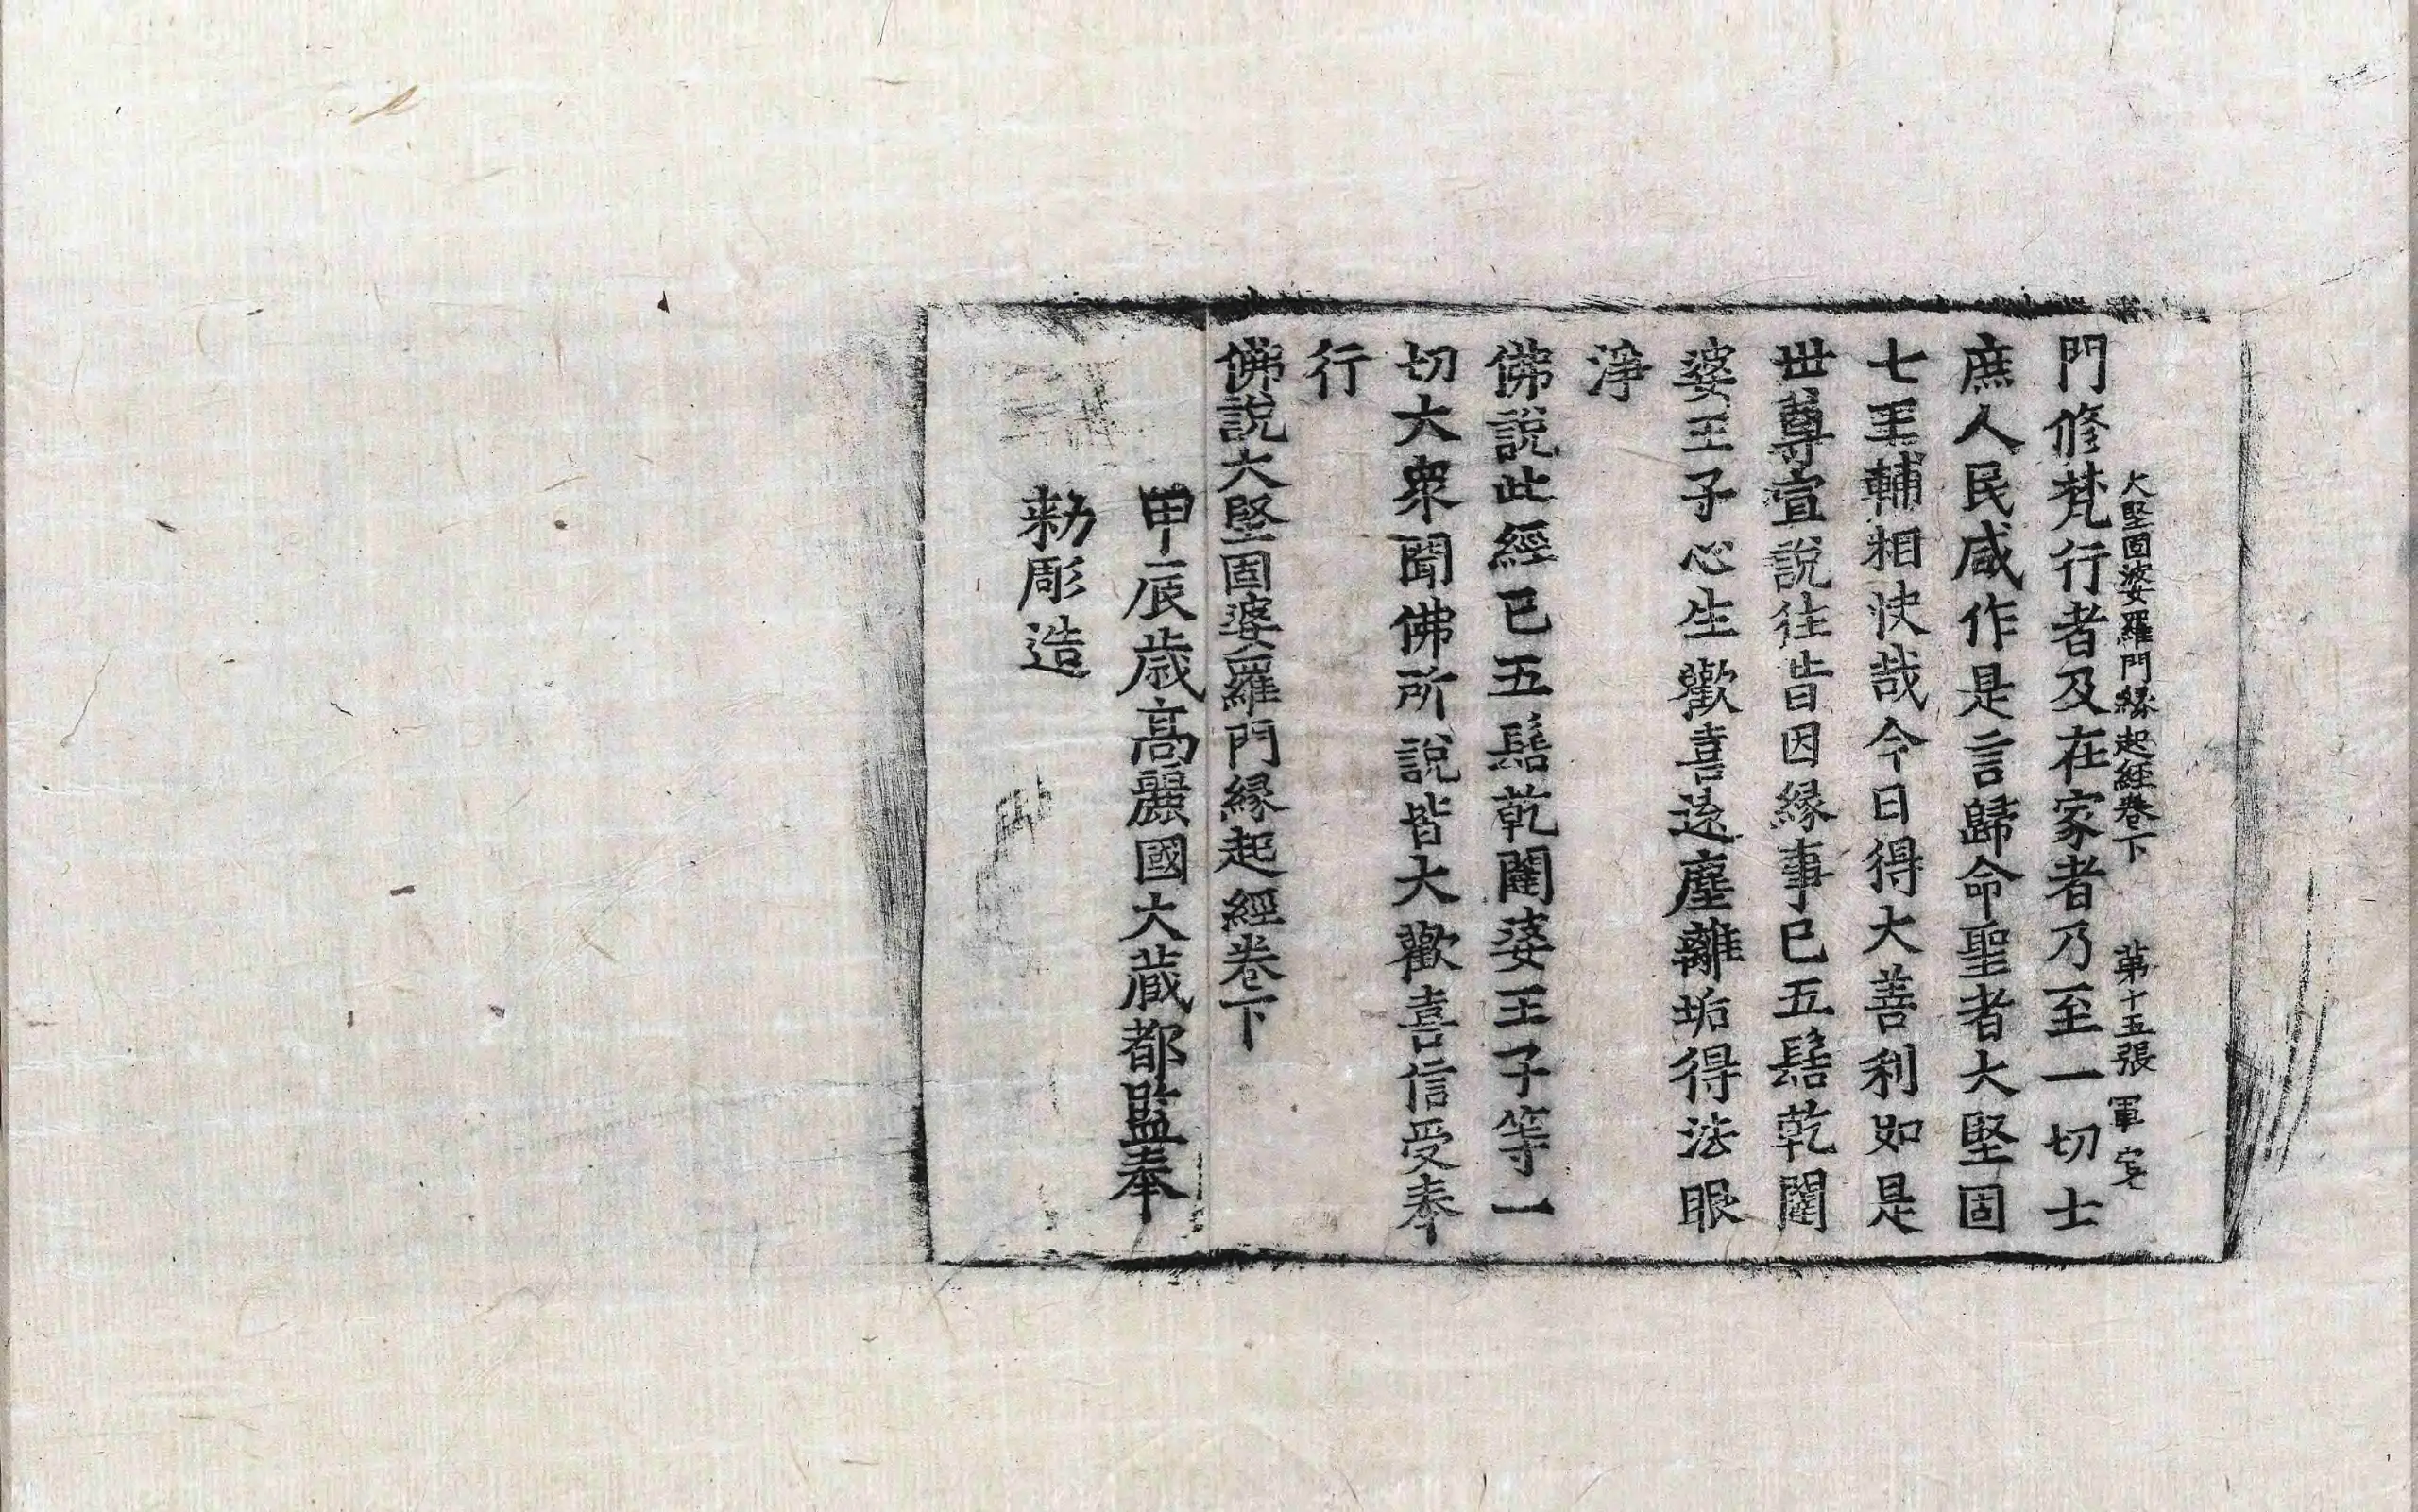 大堅固婆羅門緣起經卷下 第十五張 軍
門修梵行者及在家者乃至一切士
庶人民咸作是言歸命聖者大堅固
七王輔相快哉今日得大善利如是
世尊宣說往昔因緣事已五髻乾闥
婆王子心生歡喜遠塵離垢得法眼
淨
佛說此經已五髻乾闥婆王子等一
切大衆聞佛所說皆大歡喜信受奉
行
佛說大堅固婆羅門緣起經卷下
甲辰歲高麗國大藏都監奉
勑彫造